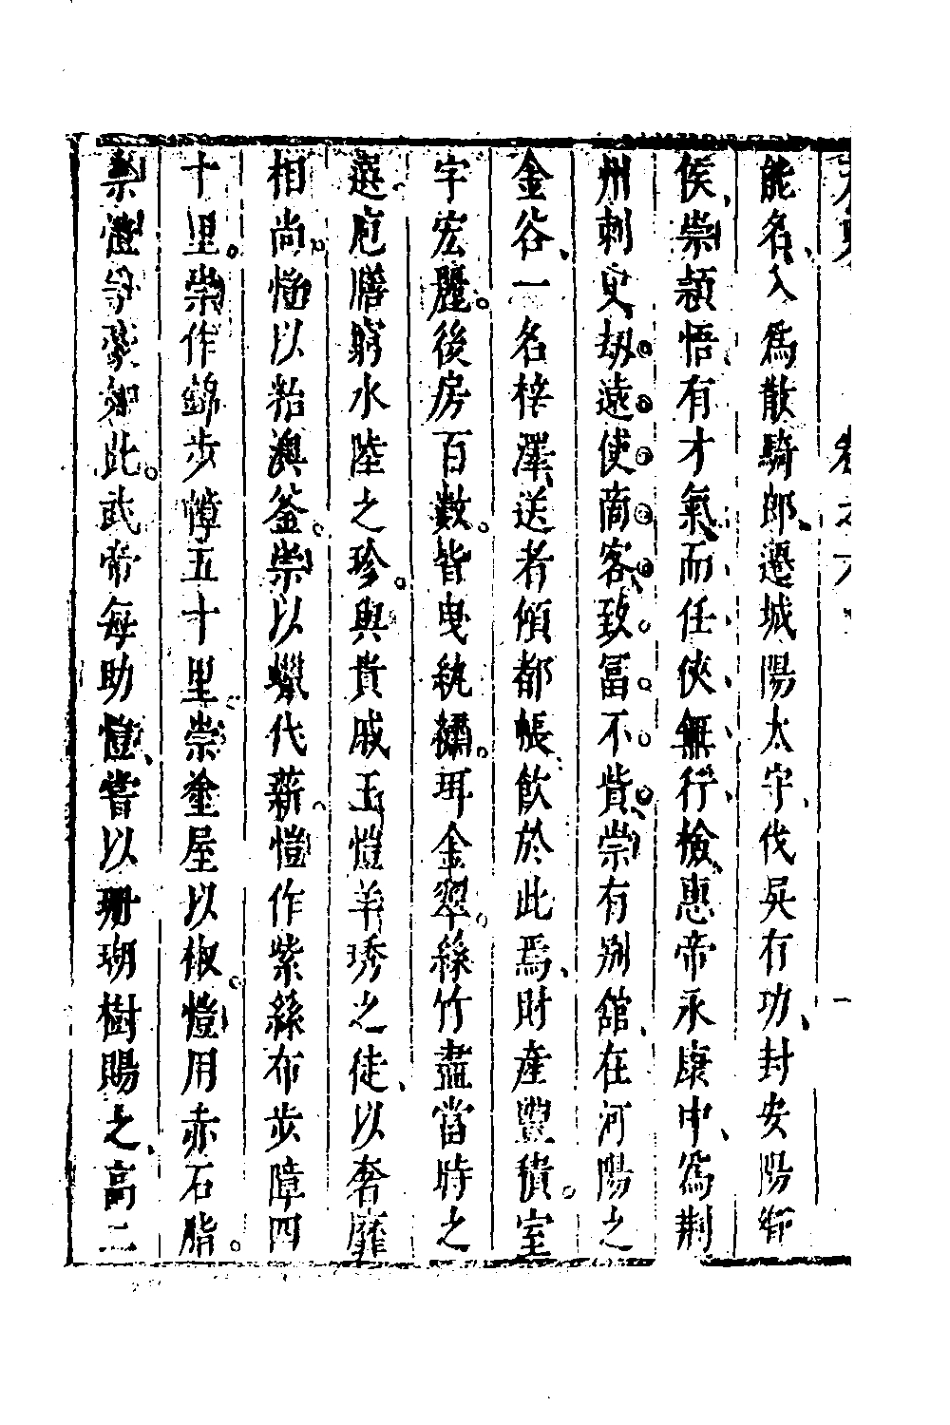 卷之六
能名入爲散騎郎遷城陽太守伐吳有功封安陽鄉
侯崇頴悟有才氣而任俠無行檢惠帝永康中爲荆
州刺史刼遠使商客致冨不貲崇有别舘在河陽之
金谷一名梓澤送者傾都帳飮於此焉財產豐積室
宇宏麗後房百數皆曳紈繡珥金翠絲竹盡當時之
選庖膳窮水陸之珍與貴戚王愷羊琇之徒以奢靡
相尚愷以粘澳釜崇以蠟代薪愷作紫絲布步障四
十里崇作錦步幛五十里崇塗屋以椒愷用赤石脂
崇愷爭豪如此武帝每助愷嘗以珊瑚樹賜之高二